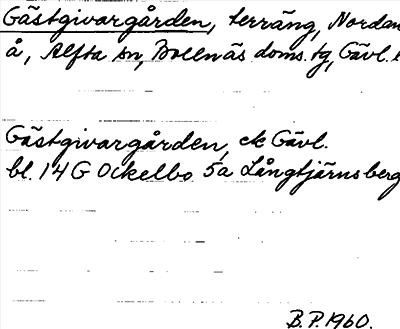 Gästgivargården, terräng, Nordan
å, Alfta sn, Bollnäs doms. tg, Gävl.
Gästgivargården, ek Gävl.
bl. 14 G Ockelbo 5a Långtjärnsberg
B.P. 1960.